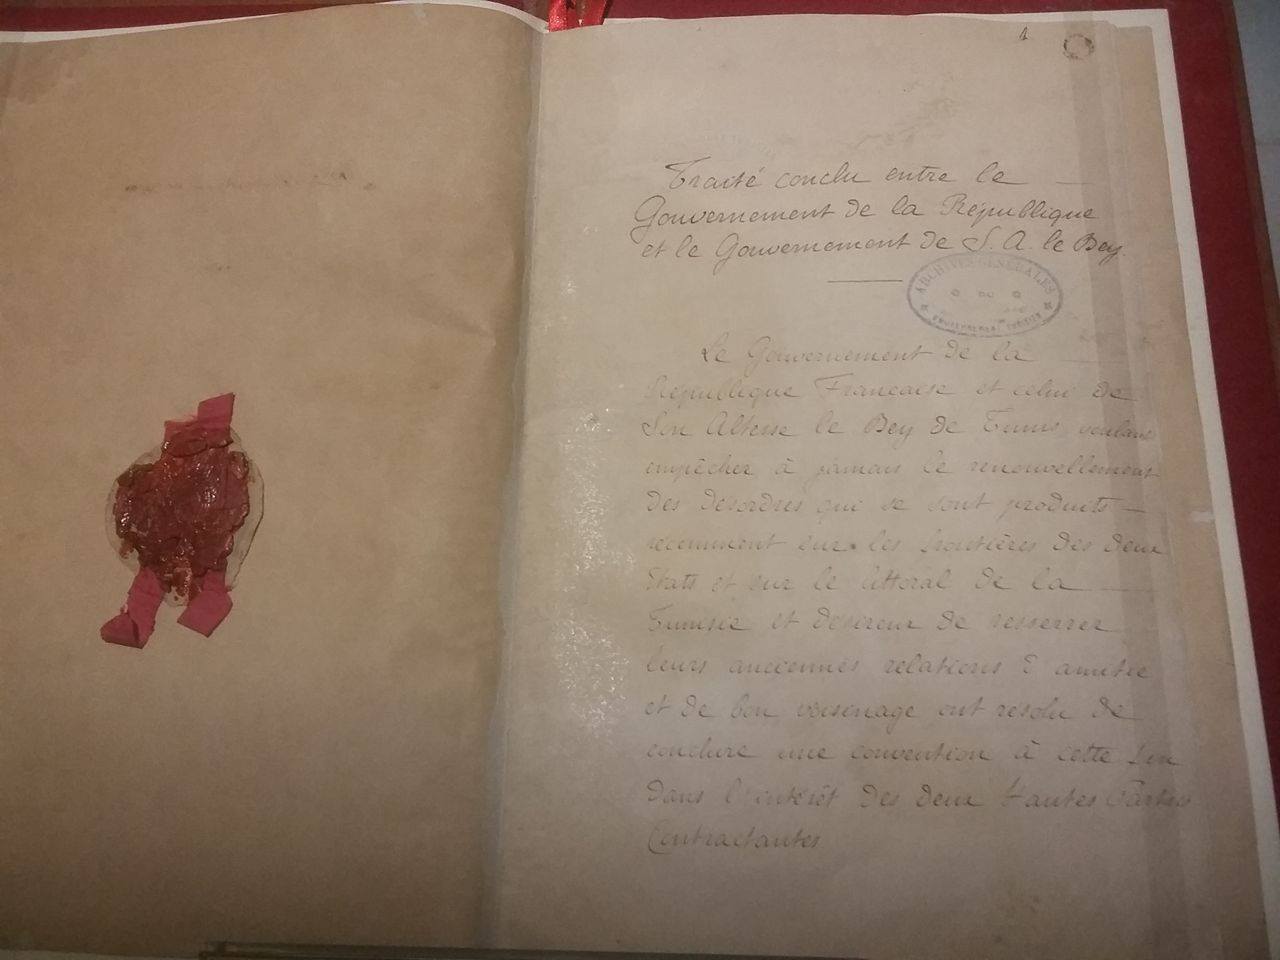 1
Traité conclu entre le
Gouvernement de la République
et le Gouvernement de S. A. le Bey.
ARCHIVES GÉNÉRALES
DU
GOUVERNEMENT TUNISIEN
Le Gouvernement de la
République Française et celui de
Son Altesse le Bey de Tunis voulant
empêcher à jamais le renouvellement
des désordres qui se sont produits
récemment sur les frontières des deux
États et sur le littoral de la
Tunisie et désireux de resserrer
leurs anciennes relations d'amitié
et de bon voisinage ont résolu de
conclure une convention à cette fin
dans l'intérêt des deux Hautes Parties
Contractantes